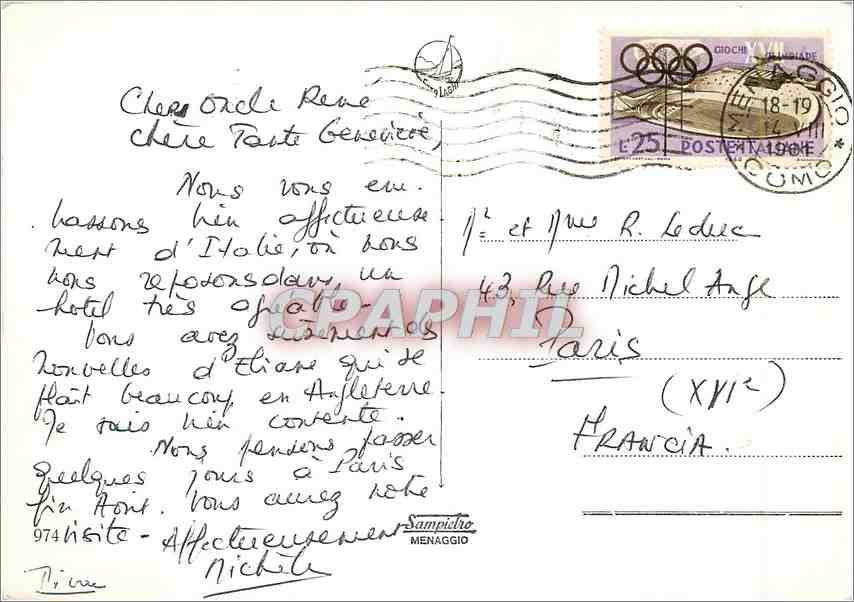 Cher Oncle René
chère Tante Geneviève,
Nous vous em-
brassons bien affectueuse-
ment d'Italie, où nous
nous reposons dans un
hotel très agréable.
Vous avez sûrement des
nouvelles d'Eliane qui se
plaît beaucoup en Angleterre.
Je suis bien contente.
Nous pensons passer
quelques jours à Paris
fin Août. Vous aurez notre
visite - Affectueusement
Michèle
974
Sampietro
MENAGGIO
GIOCHI XVII OLIMPIADE
L.25 POSTE ITALIANE
MENAGGIO
18-19
14 VIII
1961
COMO
Mr et Mme R. Leduc
43, Rue Michel Ange
Paris
(XVIe)
FRANCIA.
CPAPHIL